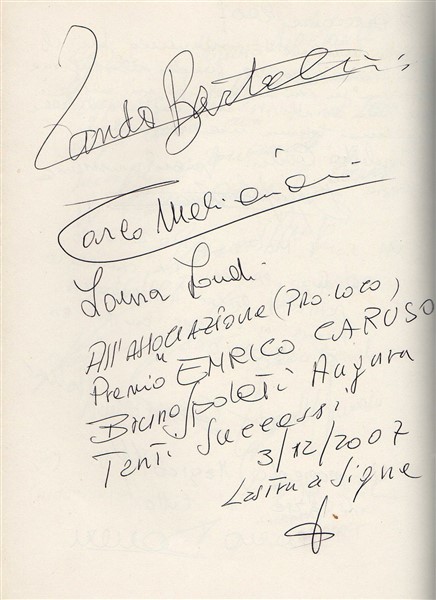 Lando Bartolini
Carlo Meliciani
Loma Londi
All'Associazione (Pro.Loco)
Premio "ENRICO CARUSO
Bruno Spoleti Augura
Tanti Successi
3/12/2007
Lastra a Signa